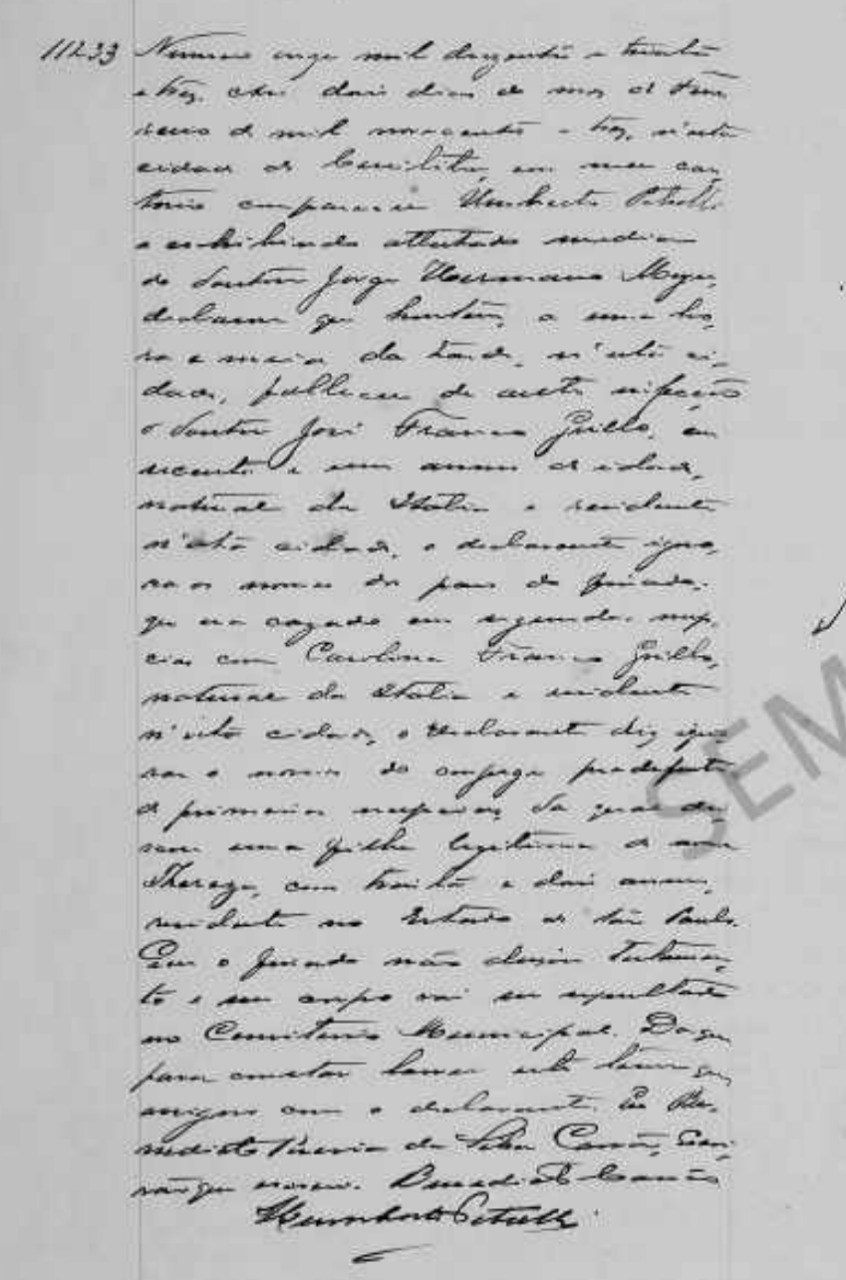 11233 Numero onze mil duzentos e trinta
e tres. Aos dois dias do mez de Feve
reiro de mil novecentos e tres, n'esta
cidade de Curitiba, em meu car
torio compareceu Humberto Petrelli
e exhibindo attestado medico
do Doutor Jorge Hermano Meyer,
declarou que hontem, a uma ho
ra e meia da tarde, n'esta ci
dade, falleceu de infecção
o Doutor José Franco Grillo, com
sessenta e um annos de idade,
natural da Italia e residente
n'esta cidade, o declarante igno
ra os nomes dos paes do finado,
que era cazado em segundas nup
cias com Carolina Franco Grillo,
natural da Italia e residente
n'esta cidade, o declarante diz igno
rar o nome do conjuge predefunto
de primeiras nupcias, da qual
uma filha legitima de nome
Thereza, com trinta e dois annos,
residente no Estado de São Paulo.
Que o finado não deixou testamen
to e seu corpo vai ser sepultado
no Cemiterio Municipal. Do que
para constar lavrei este termo que
assigno com o declarante. Eu Be
nedicto Pereira da Silva Carrão, Escri
vão que escrevi. Benedicto Carrão
Humberto Petrelli
SEM